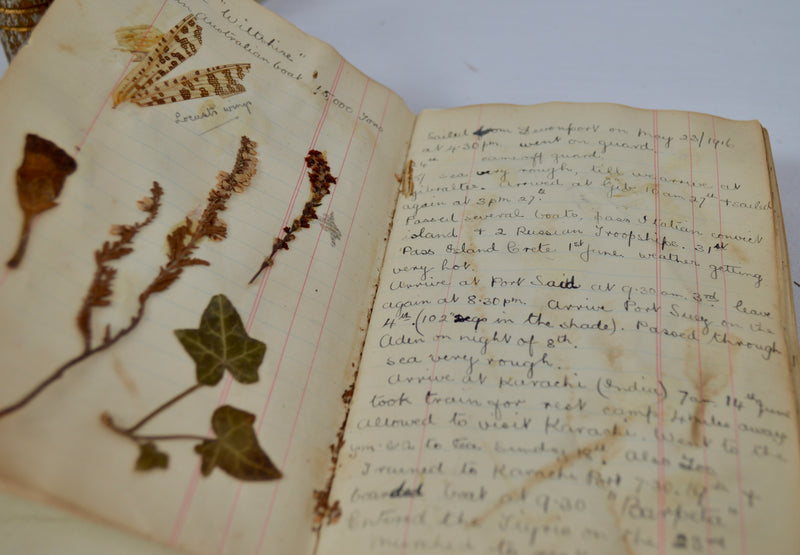 "Wiltshire"
an Australian boat 15,000 Tons
Locusts wings
Sailed from Devonport on May 23/1916
at 4.30 pm. went on guard
4th came off guard.
sea very rough, till we arrive at
Gibraltar. Arrived at Gib: 10 am 27th &
again at 3 pm 27th
Passed several boats, pass Italian convict
island & 2 Russian Troopships. 31st
Pass Island Crete 1st June weather getting
very hot.
Arrive at Port Said at 9.30 am. 3rd leave
again at 8.30 pm. Arrive Port Suez on the
4th. (102 degs in the shade). Passed through
Aden on night of 8th.
sea very rough.
Arrive at Karachi (India) 7 am 14th June
took train for rest camp 4 miles away
allowed to visit Karachi. Went to the
to tea Sunday 18th also Zoo
Trained to Karachi Port 7.30. 19th &
boarded boat at 9.30 "Barpeta"
Entered the Tigris on the 23rd